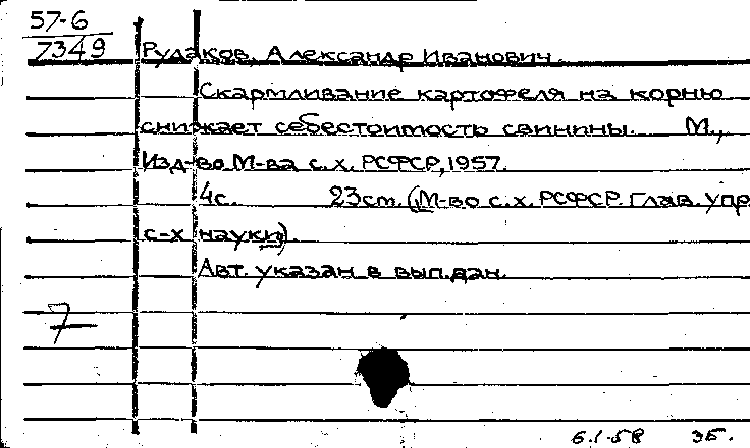 57-6
7349
Рудаков, Александр Иванович.
Скармливание картофеля на корню
снижает себестоимость свинины. М.,
Изд-во М-ва с.х. РСФСР, 1957.
4с. 23см. (М-во с.х. РСФСР. Глав. упр.
с-х науки).
Авт. указан в вып.дан.
7
6.1.58 ЭБ.